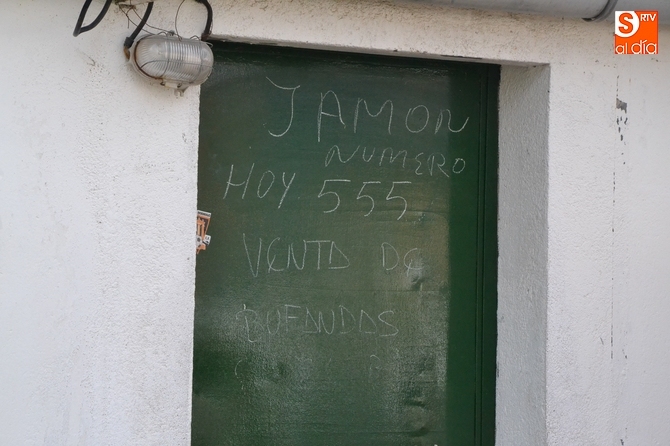 JAMON
NUMERO
HOY 555
VENTA DE
BUFANDAS
S RTV
al día